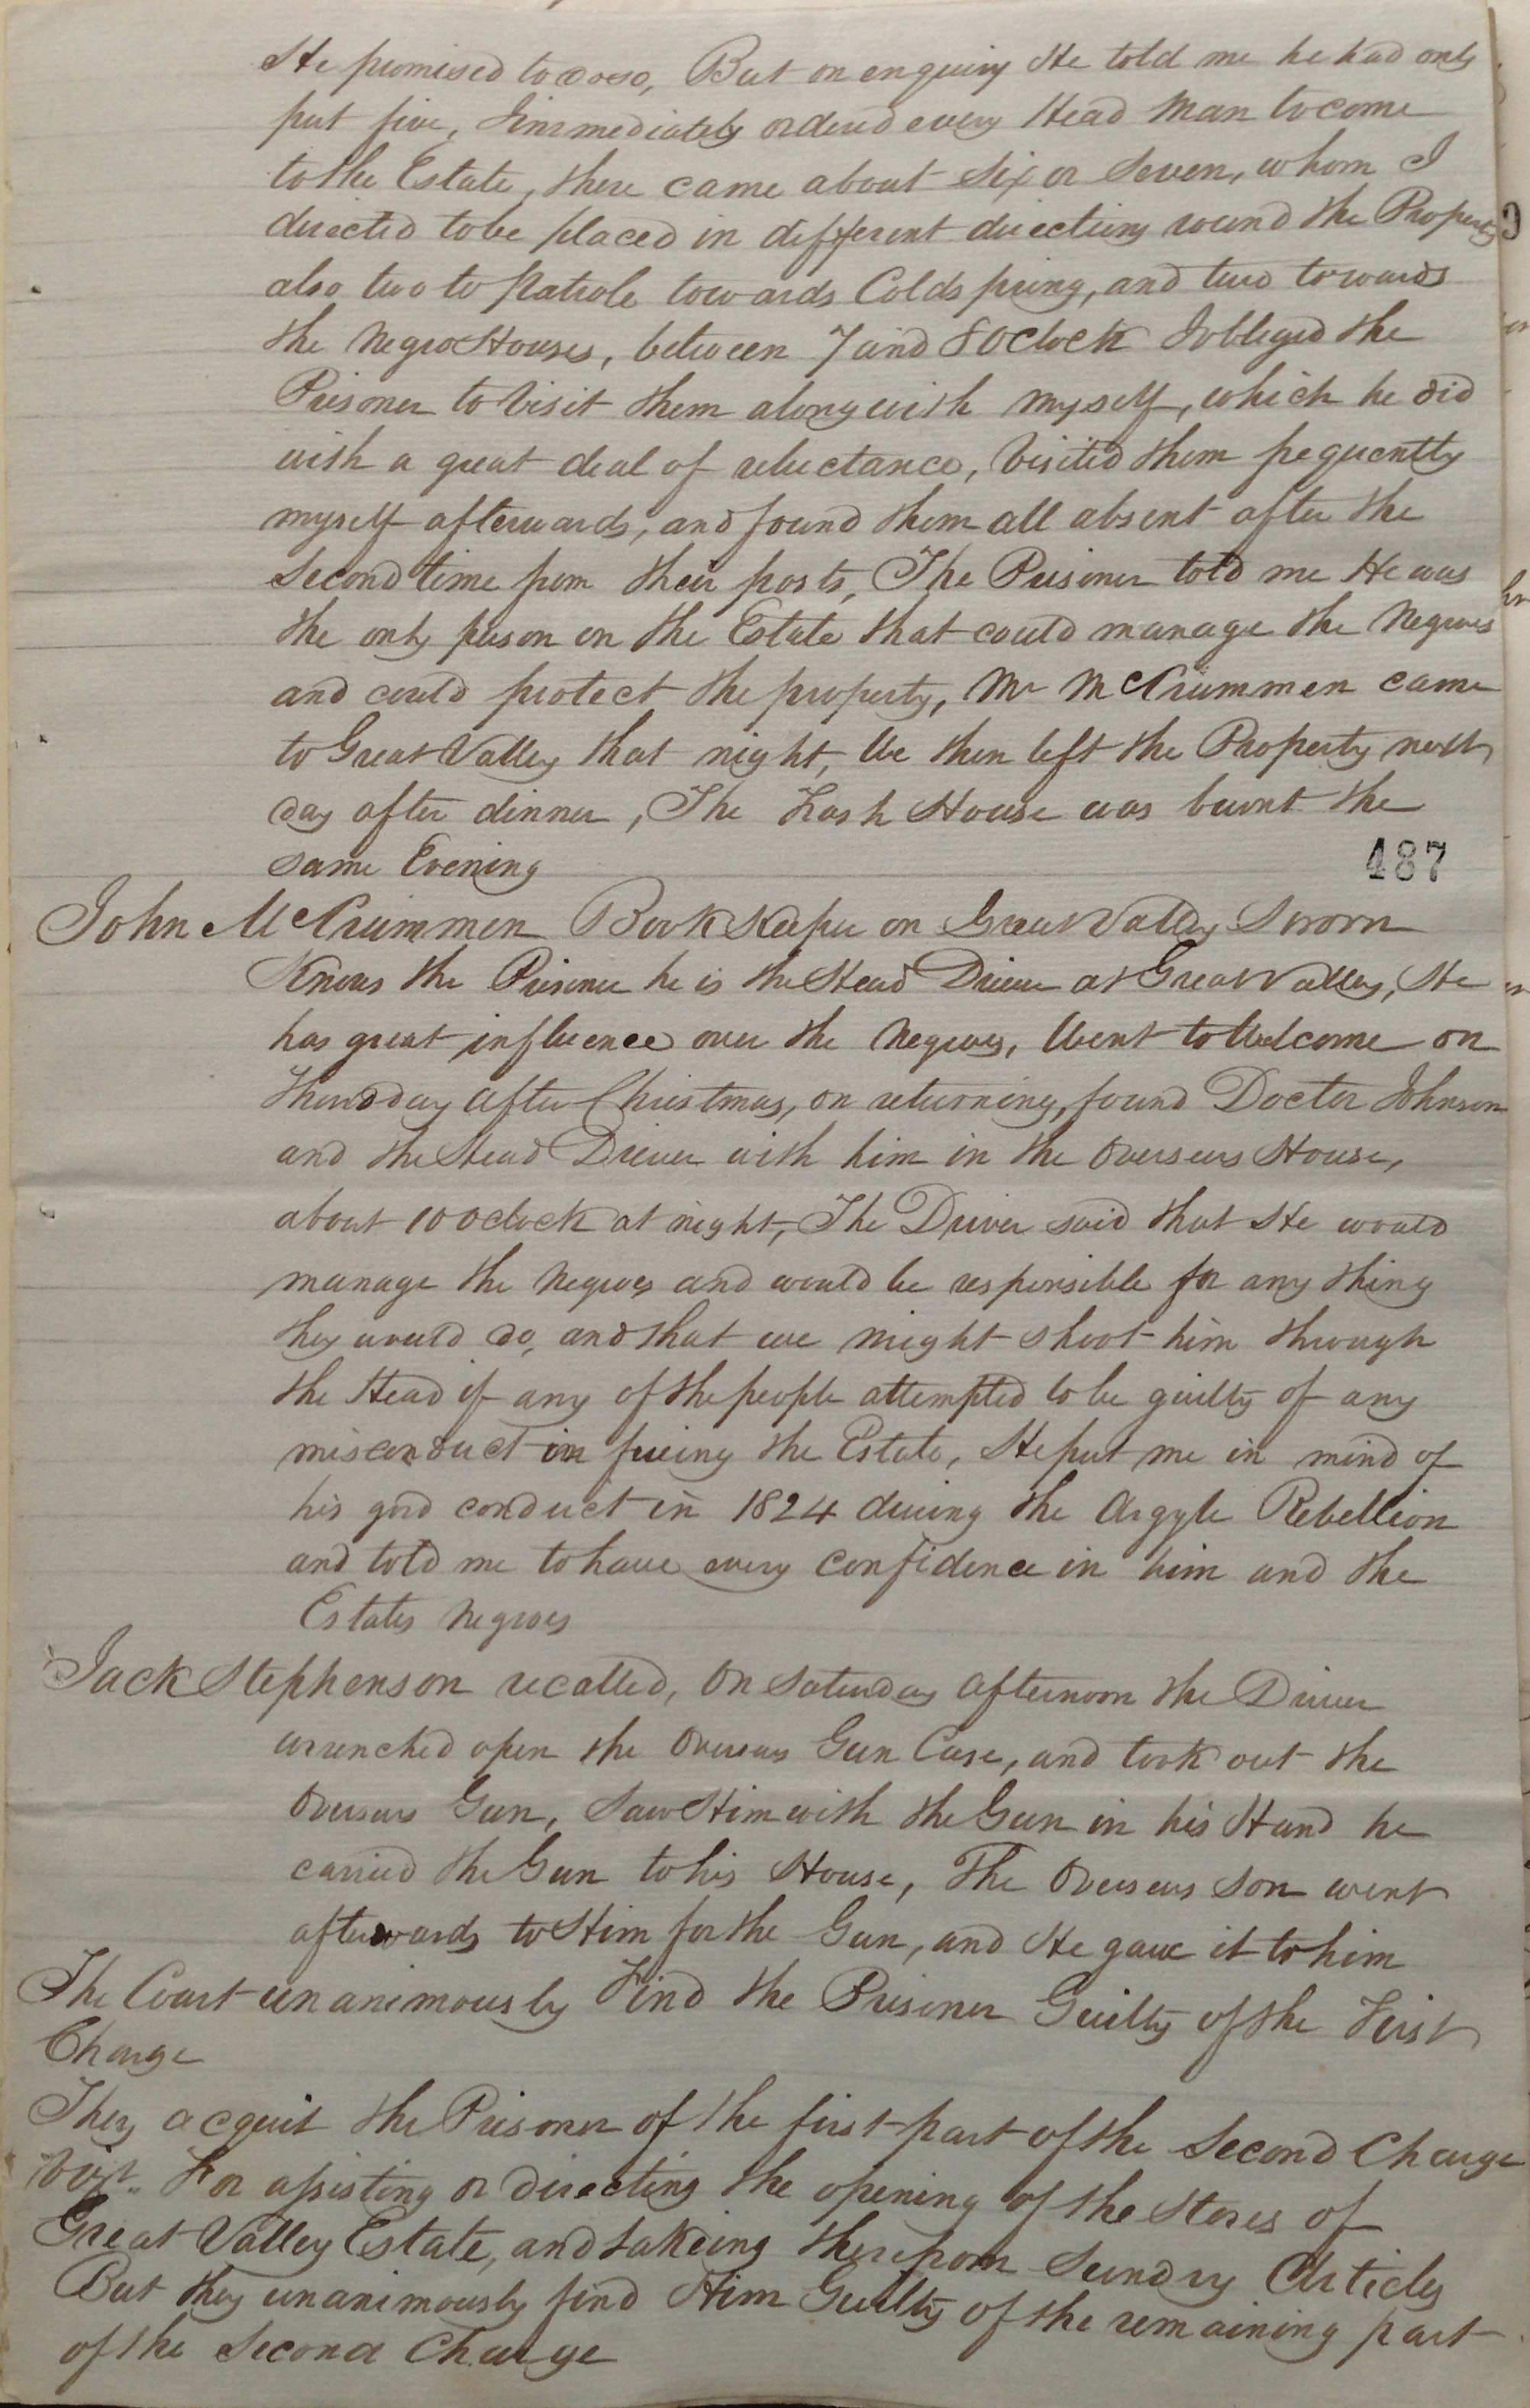 He promised to do so, But on enquiry He told me he had only
put five, I immediately ordered every Head Man to come
to the Estate, there came about Six or Seven, whom I
directed to be placed in different directions round the Property
also two to Patrole towards Coldspring, and two towards
the Negro Houses, between 7 and 8 OClock I obliged the
Prisoner to Visit them along with myself, which he did
with a great deal of reluctance, Visited them frequently
myself afterwards, and found them all absent after the
Second time from their posts, The Prisoner told me He was
the only person on the Estate that could manage the Negroes
and could protect the property, Mr McCrummen came
to Great Valley that night, We then left the Property next
day after dinner, The Trash House was burnt the
same Evening
487
John McCrummen Book Keeper on Great Valley Sworn
Knows the Prisoner he is the Head Driver at Great Valley, He
has great influence over the Negroes, Went to Welcome on
Thursday after Christmas, on returning, found Doctor Johnson
and the Head Driver with him in the Overseers House,
about 10 Oclock at night, The Driver said that He would
manage the Negroes and would be responsible for any thing
they would do, and that we might shoot him through
the Head if any of the people attempted to be guilty of any
misconduct in fireing the Estate, He put me in mind of
his good conduct in 1824 during the Argyle Rebellion
and told me to have every confidence in him and the
Estates Negroes
Jack Stephenson recalled, On Saturday afternoon the Driver
wrenched open the Overseers Gun Case, and took out the
Overseers Gun, Saw Him with the Gun in his Hand he
carried the Gun to his House, The Overseers Son went
afterwards to Him for the Gun, and He gave it to him
The Court unanimously Find the Prisoner Guilty of the First
Charge
They acquit the Prisoner of the first part of the Second Charge
Vizt. For assisting or directing the opening of the Stores of
Great Valley Estate, and takeing therefrom Sundry Articles
But they unanimously find Him Guilty of the remaining part
of the Second Charge